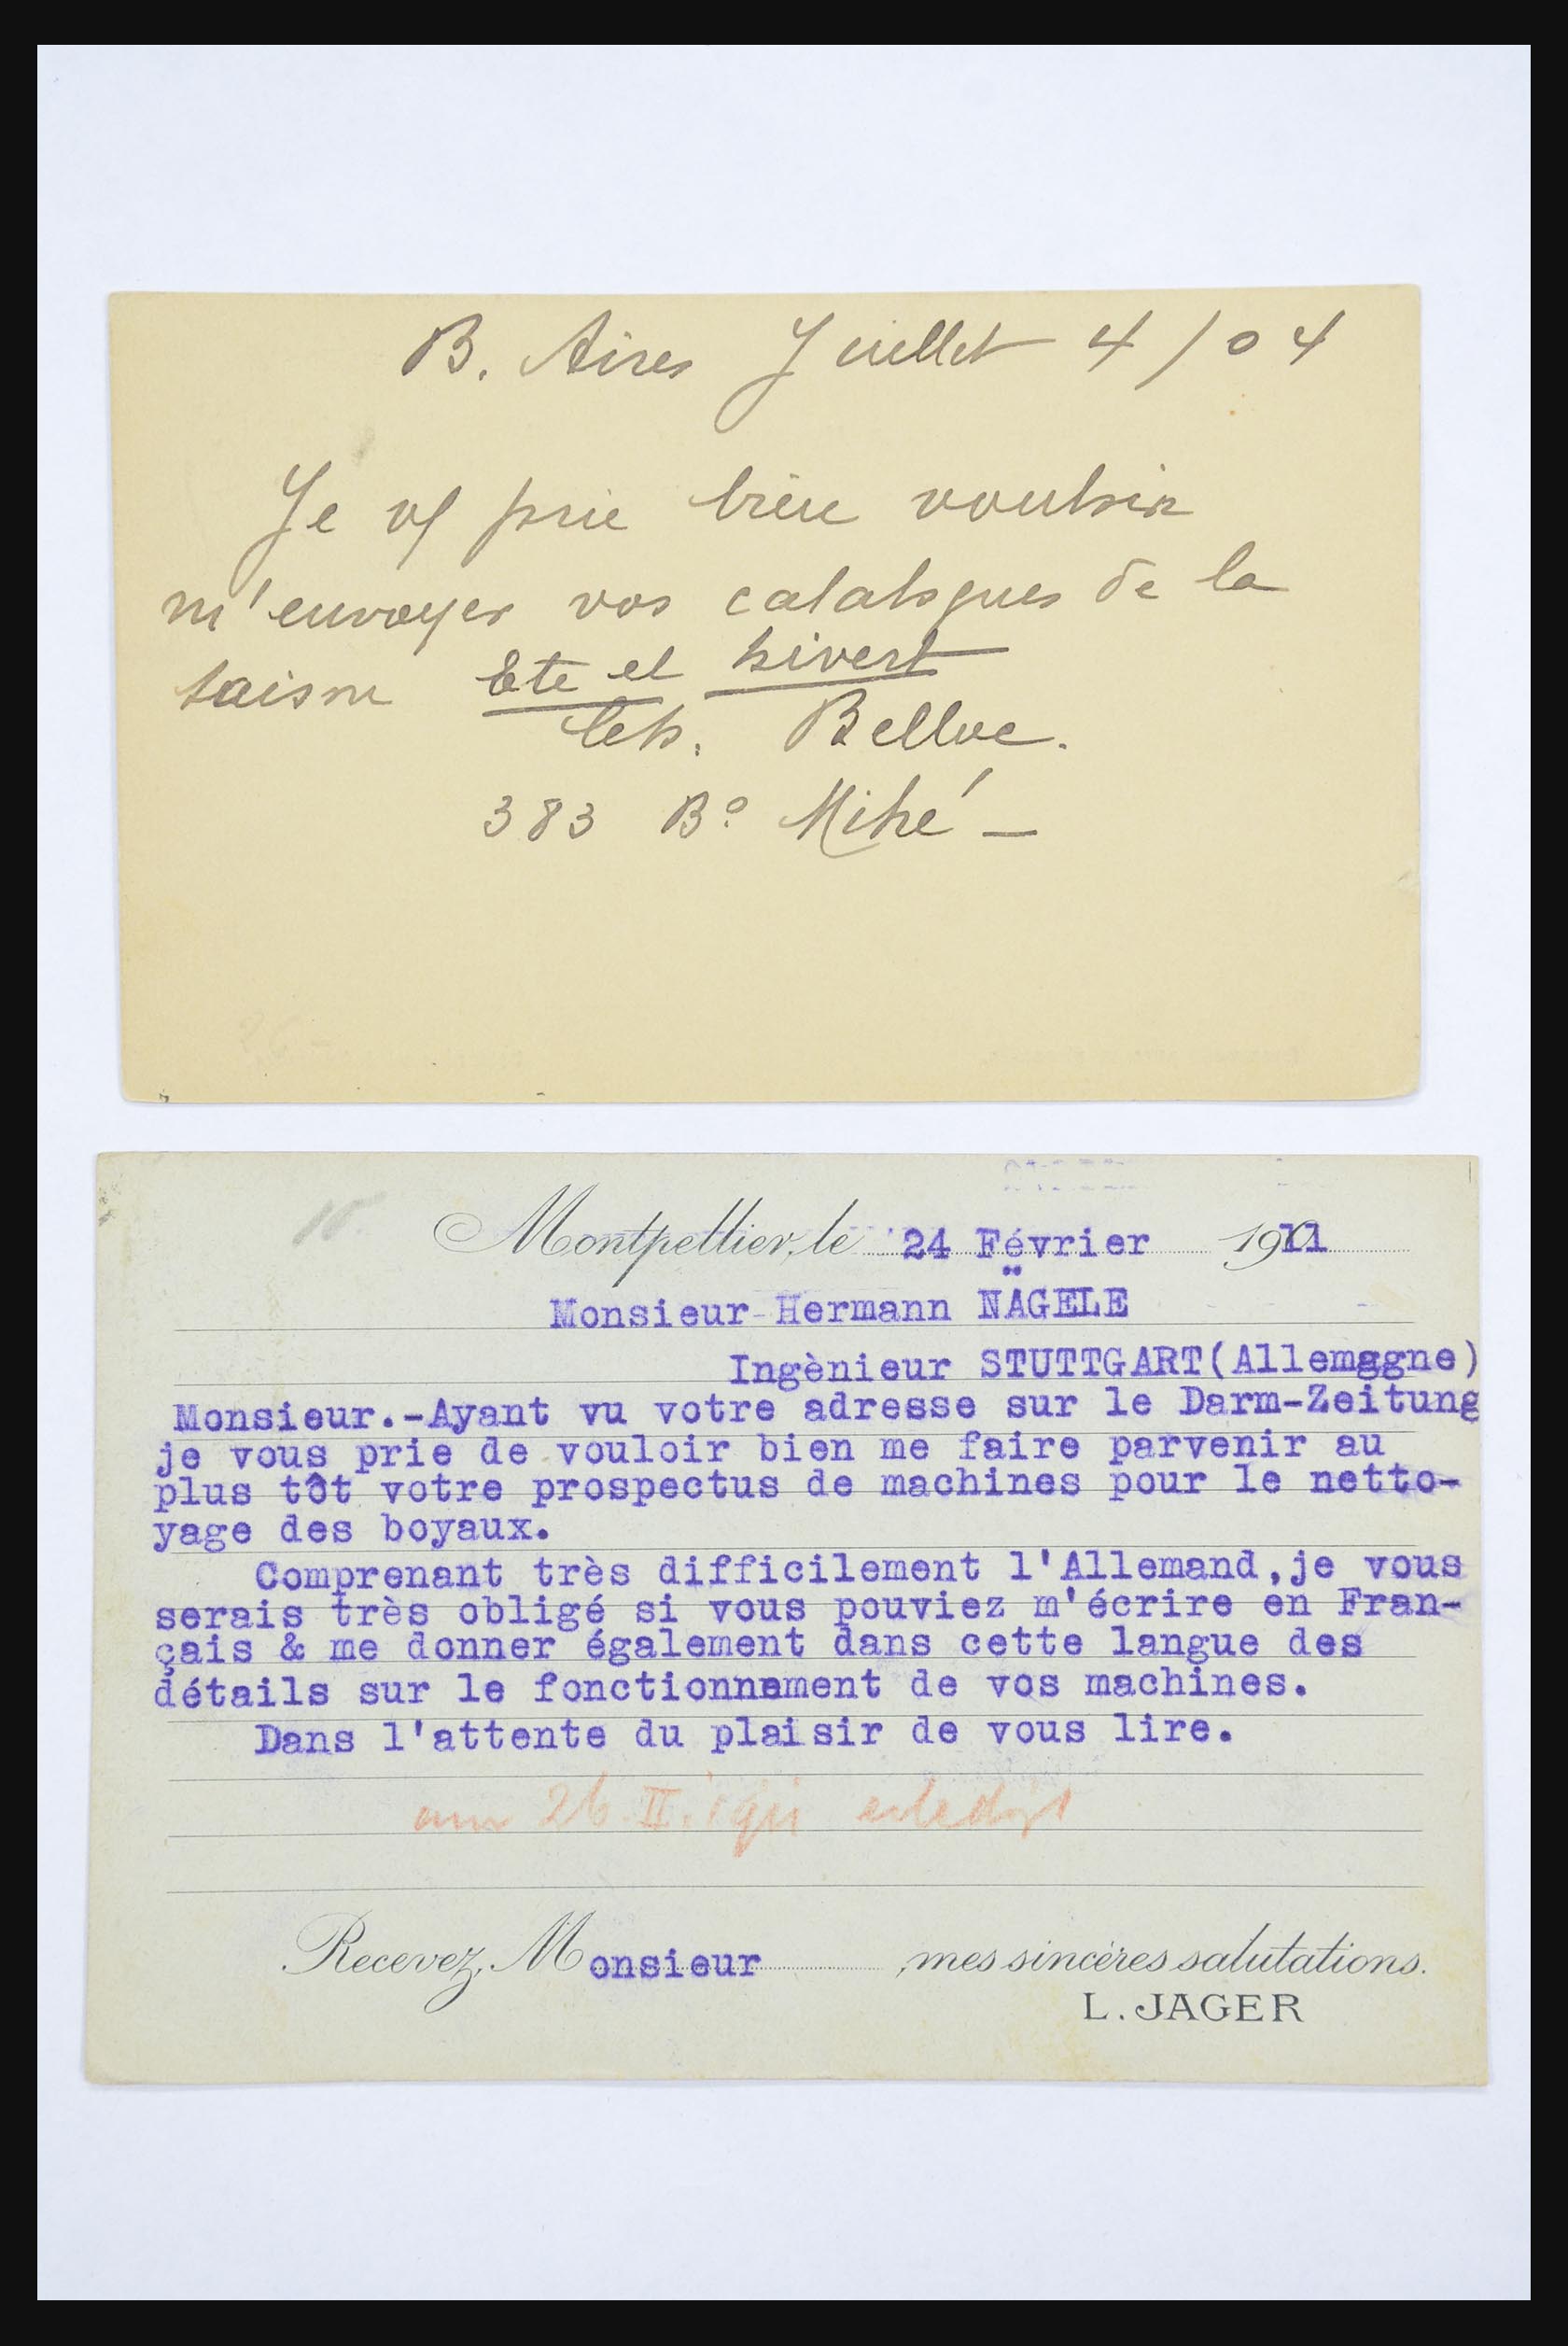 B. Aires Juillet 4/04
Je vs prie bien vouloir
m'envoyer vos catalogues de la
saison Ete et hivert
Belloc.
383 Bº Mitré —
Montpellier, le 24 Février 1911
Monsieur Hermann NÄGELE
Ingènieur STUTTGART(Allemagne)
Monsieur.-Ayant vu votre adresse sur le Darm-Zeitung
je vous prie de vouloir bien me faire parvenir au
plus tôt votre prospectus de machines pour le netto-
yage des boyaux.
Comprenant très difficilement l'Allemand,je vous
serais très obligé si vous pouviez m'écrire en Fran-
çais & me donner également dans cette langue des
détails sur le fonctionnement de vos machines.
Dans l'attente du plaisir de vous lire.
am 26 II. 1911 erledigt
Recevez, Monsieur , mes sincères salutations.
L. JAGER